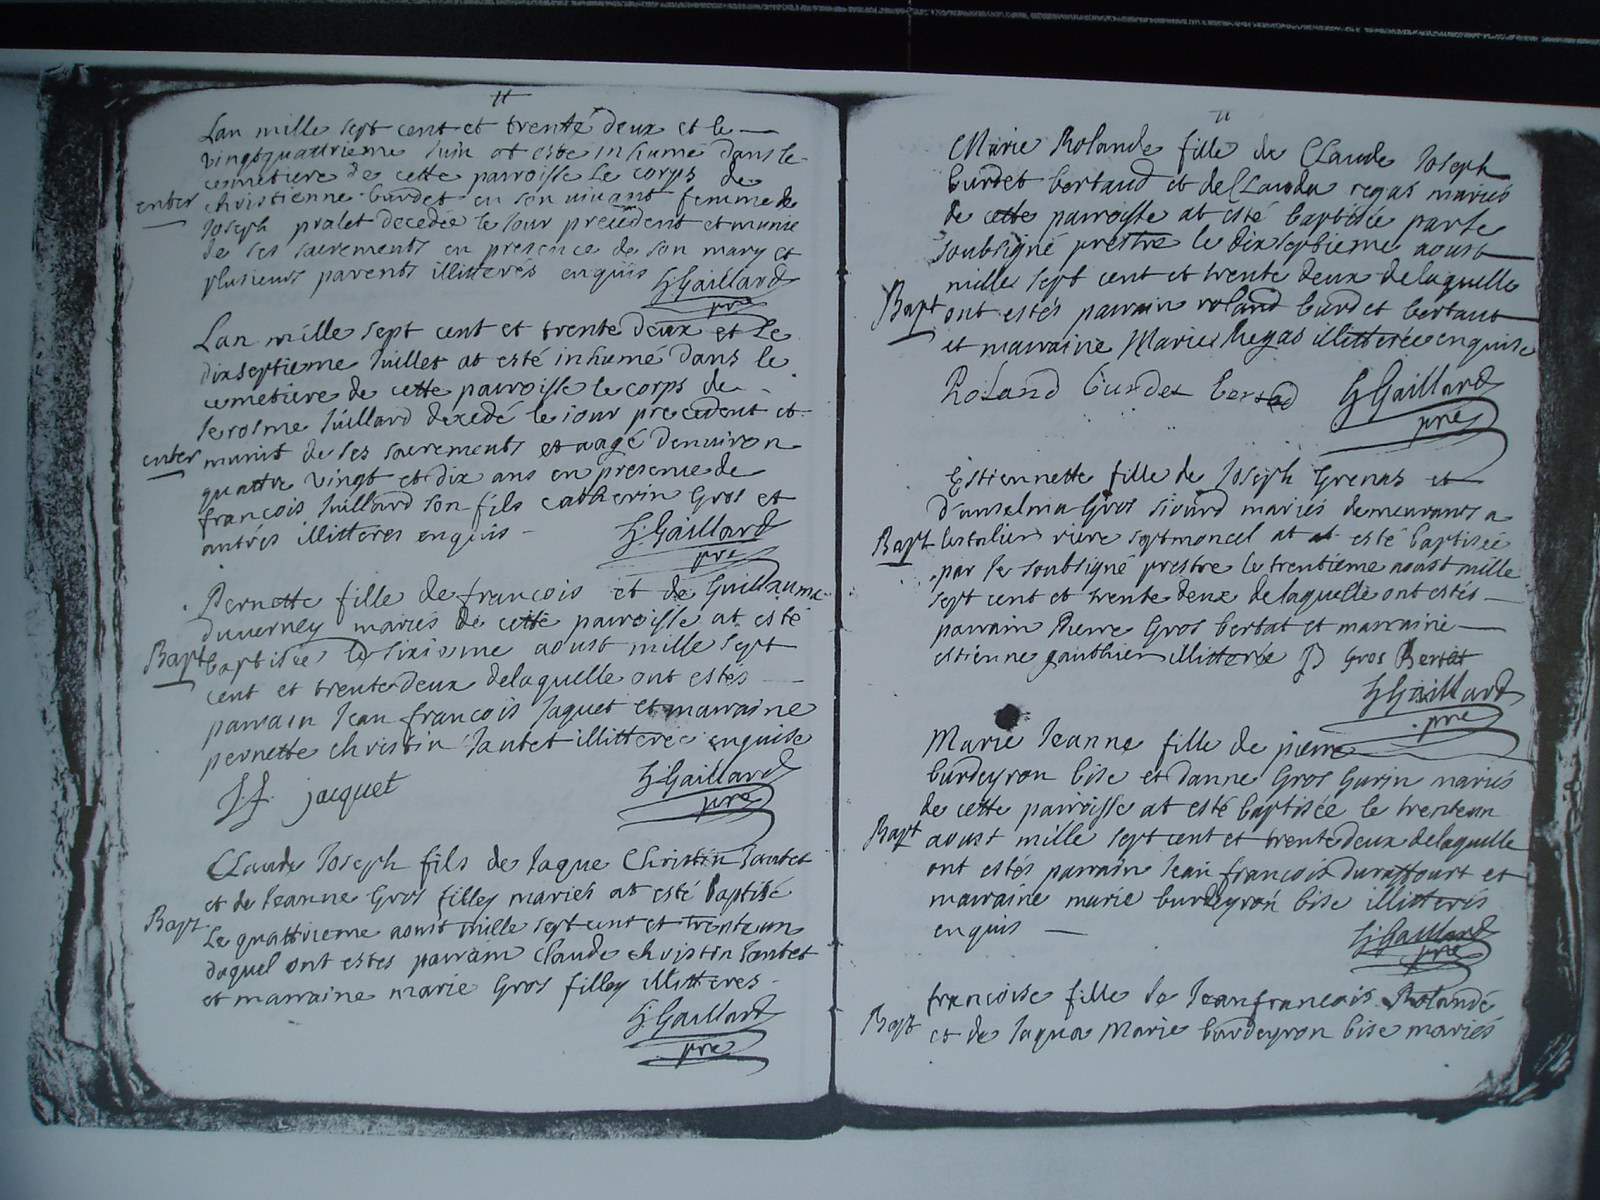 Lan mille sept cent et trente deux et le
vingtquattrieme Juin at esté inhumé dans le
cemetiere de cette parroisse le corps de
enter
christienne burdet en son vivant femme de
Joseph pralet decedée le Jour precedent et munie
de ses sacrements en presence de son mary et
plusieurs parents illitteres enquis G Gaillard
pre
Lan mille sept cent et trente deux et Le
dixseptieme Juillet at esté inhumé dans le
cemetiere de cette parroisse le corps de
Jerosme Juillard decedé le jour precedent et
enter
munit de ses sacrements et aagé denuiron
quattre vingt et dix ans en presence de
francois Juillard son fils Catherin Gros et
autrés illitteres enquis G Gaillard
pre
Pernette fille de francois et de Guillauma
duverney mariés de cette parroisse at esté
Bapt
baptisée le sixieme aoust mille sept
cent et trente deux delaquelle ont estés
parrain Jean francois Jaquet et marraine
pernette christin Jantet illitterée enquise
J f jacquet G Gaillard
pre
CLaude Joseph fils de Jaque Christin Jantet
et de Jeanne Gros filley mariés at esté baptisé
Bapt
Le quattrieme aoust mille sept cent et trente
daquel ont estes parrain Claude christin Jantet
et marraine marie Gros filley illitteres
G Gaillard
pre
Marie Rolande fille de CLaude Joseph
burdet bertaud et de CLauda regas mariés
de cette parroisse at esté baptisée par le
soubsigné prestre le dixseptieme aoust
mille sept cent et trente deux delaquelle
Bapt
ont estés parrain roland burdet bertaut
et marraine Marie Regas illitterée enquise
Roland burdet G Gaillard
pre
Estiennette fille de Joseph Grenat et
d'anselma Gros mariés demeurants a
Bapt
riere septmoncel at esté baptisée
par le soubsigné prestre le trentieme aoust mille
sept cent et trente deux delaquelle ont estés
parrain Pierre Gros bertat et marraine
estienne gauthier illitterée P Gros Bertat
G Gaillard
pre
Marie Jeanne fille de pierre
burdeyron bise et danne Gros Gurin mariés
de cette parroisse at esté baptisée le trenteun
Bapt
aoust mille sept cent et trente deux delaquelle
ont estés parrain Jean francois duraffourt et
marraine marie burdeyron bise illitterés
enquis
G Gaillard
pre
francoise fille de Jeanfrancois Rolandé
Bapt
et de Jaqua Marie burdeyron bise mariés